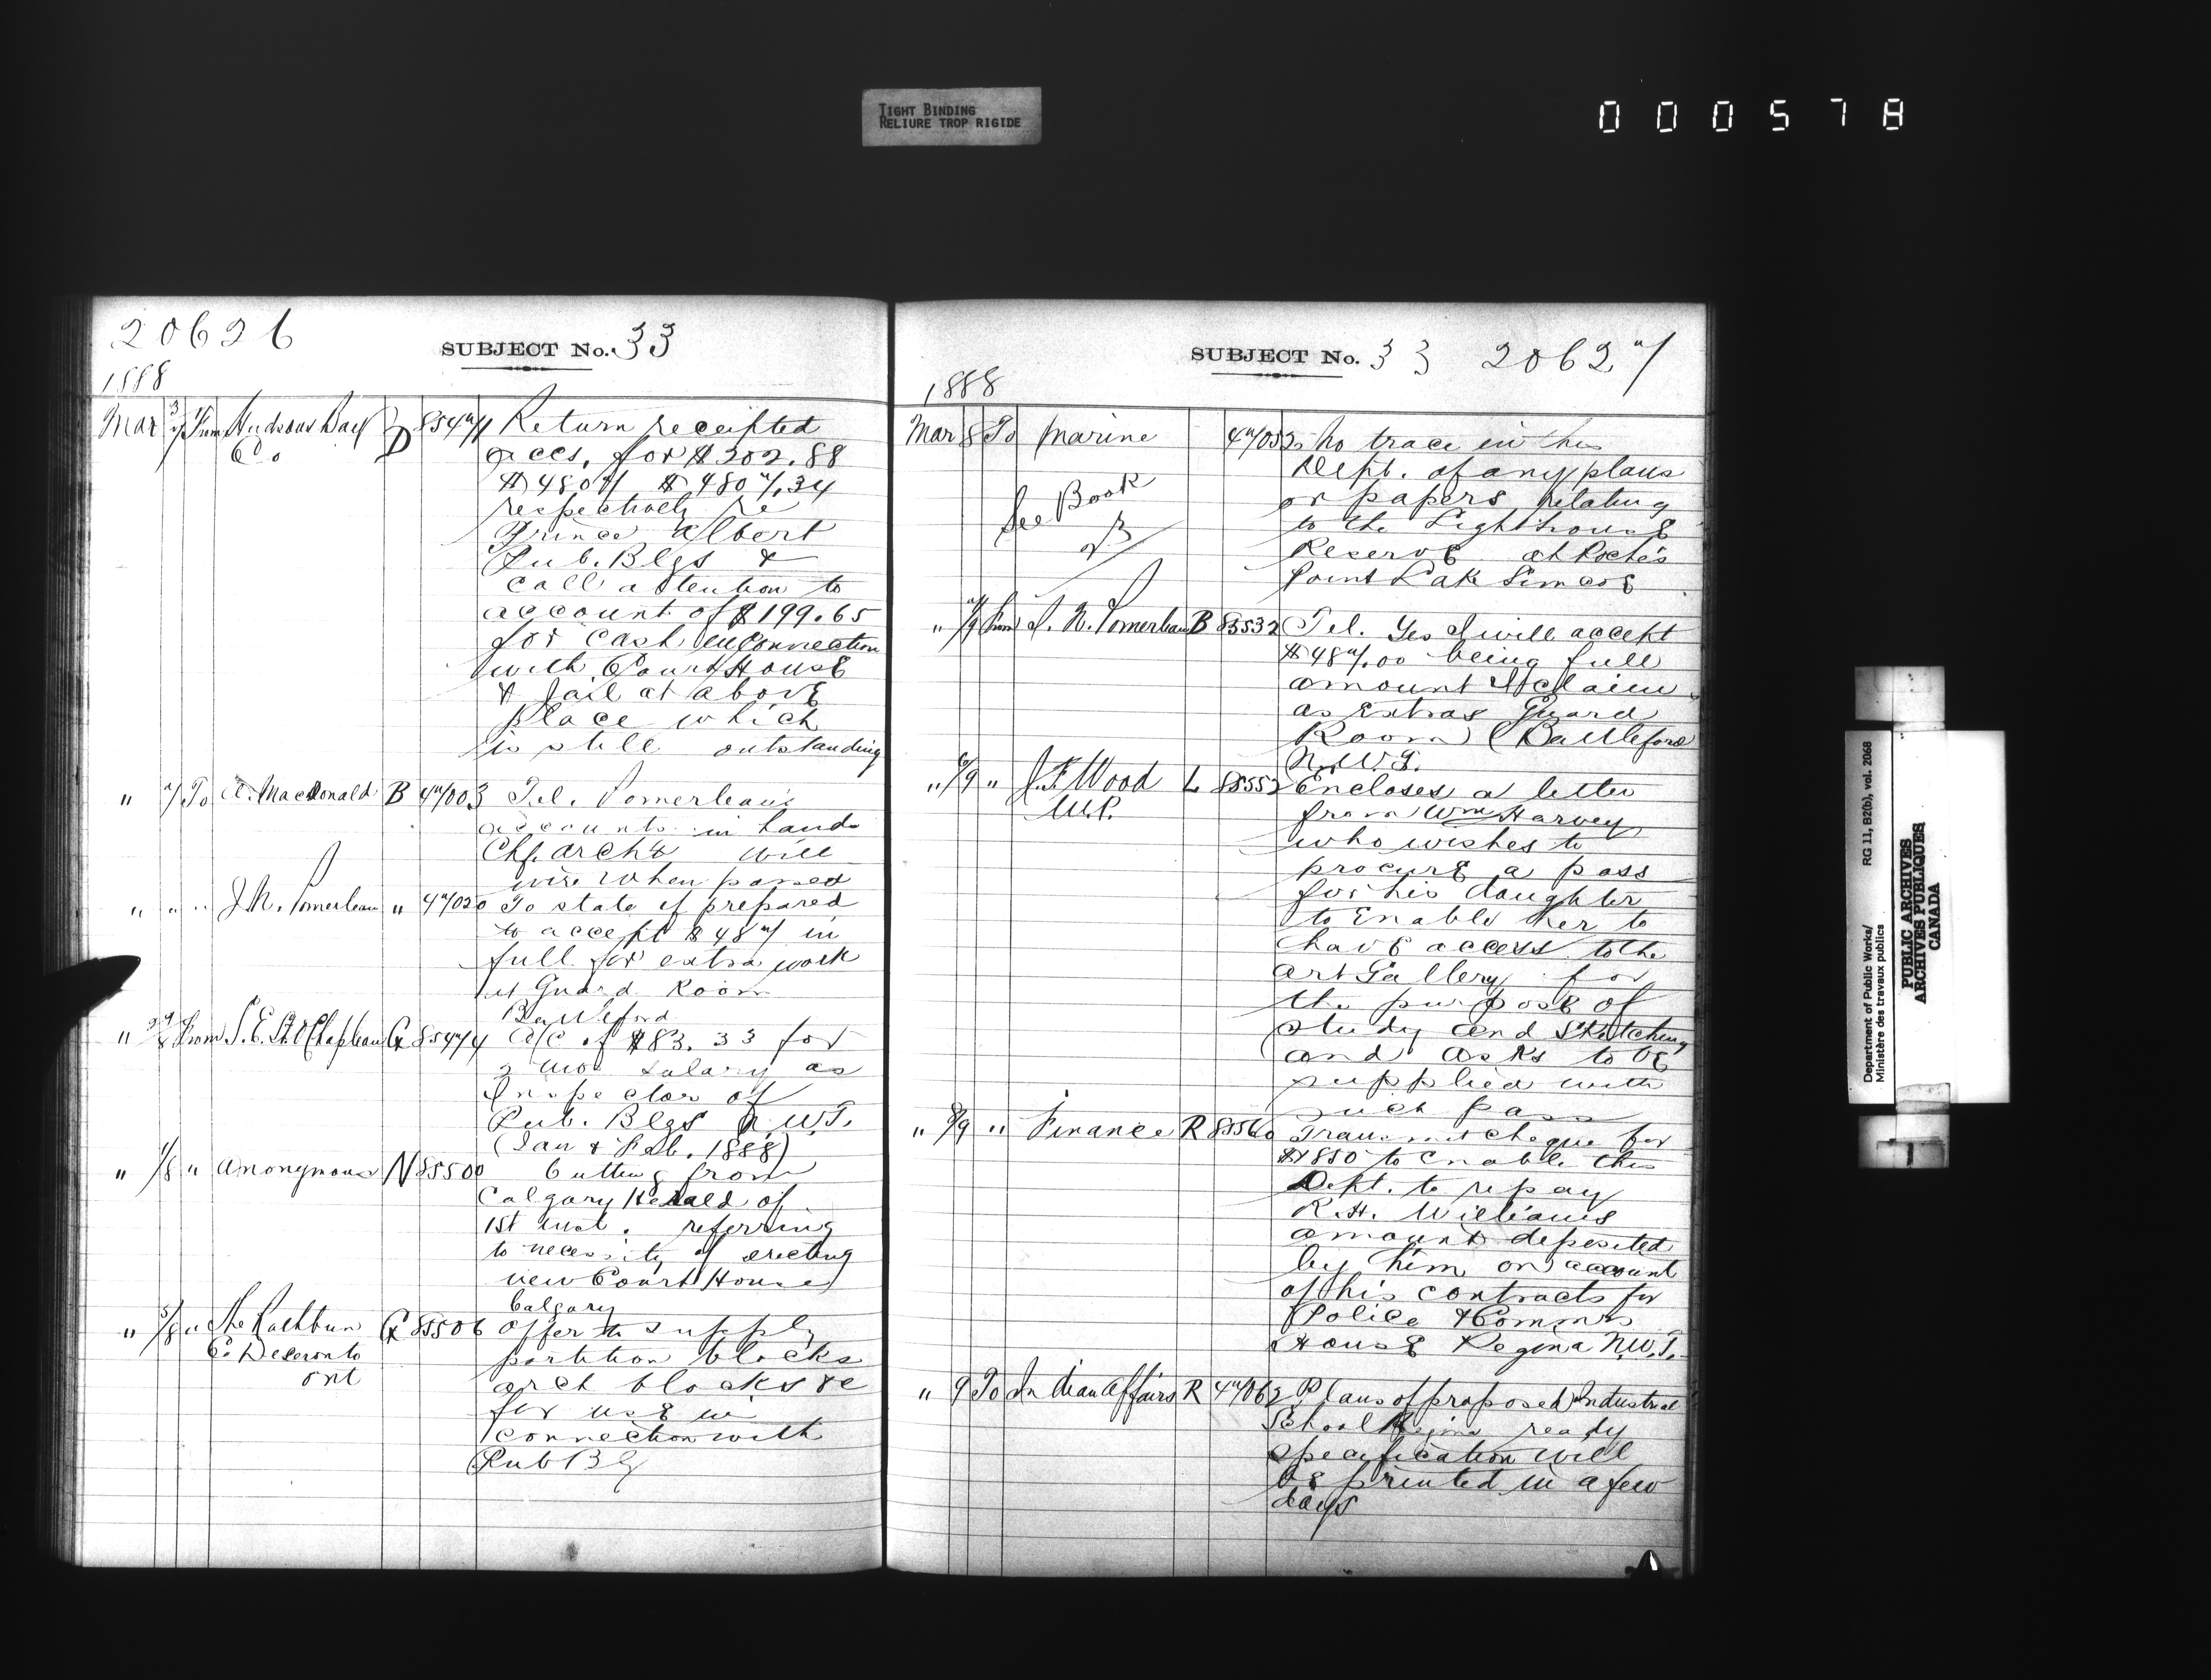 TIGHT BINDING
RELIURE TROP RIGIDE
000578
20626
SUBJECT No. 33
1888
Mar 3/7 From Hudsons Bay D 85471 Return receipted
Co accs. for $202.88
$4807 $4807.34
respectively re
Prince Albert
Pub. Blgs &
call attention to
account of $199.65
for cash in connection
with Court House
& Jail at above
place which
is still outstanding
" 7 To A. MacDonald B 47003 Tel. Pomerleau's
accounts in hands
Chf. Archt will
wire when passed
" " " J. N. Pomerleau " 47020 To state if prepared
to accept $487 in
full for extra work
at Guard Room
Battleford
" From S. E. St. O Chapleau G 85474 A/c of $83.33 for
2 mos salary as
Inspector of
Pub. Blgs N.W.T.
(Jan & Feb. 1888)
" 1/8 " Anonymous N 85500 Cutting from
Calgary Herald of
1st inst. referring
to necessity of erecting
new Court House
Calgary
" 5/8 " The Rathbun G 85506 Offer to supply
Co Deseronto partition blocks
Ont arch blocks &c
for use in
connection with
Pub Blg
SUBJECT No. 33 20627
1888
Mar 8 To Marine 47052 No trace in this
Dept. of any plans
See Book or papers relating
to the Lighthouse
Reserve at Roche's
Point Lake Simcoe
" 7/9 From J. N. Pomerleau B 85532 Tel. Yes I will accept
$487.00 being full
amount I claim
as extras Guard
Room (Battleford
N.W.T.
" 6/9 " J. F. Wood L 85552 Encloses a letter
M.P. from Wm Harvey
who wishes to
procure a pass
for his daughter
to enable her to
have access to the
Art Gallery for
the purpose of
study and sketching
and asks to be
supplied with
such pass
" 8/9 " Finance R 85560 Transmit cheque for
$1850 to enable this
Dept. to repay
R. H. Williams
amount deposited
by him on account
of his contracts for
Police & Comm's
House Regina N.W.T.
" 9 To Indian Affairs R 47062 Plans of proposed Industrial
School Regina ready
specification will
be printed in a few
days
Department of Public Works/ RG 11, B2(b), vol. 2068
Ministère des travaux publics
PUBLIC ARCHIVES
ARCHIVES PUBLIQUES
CANADA